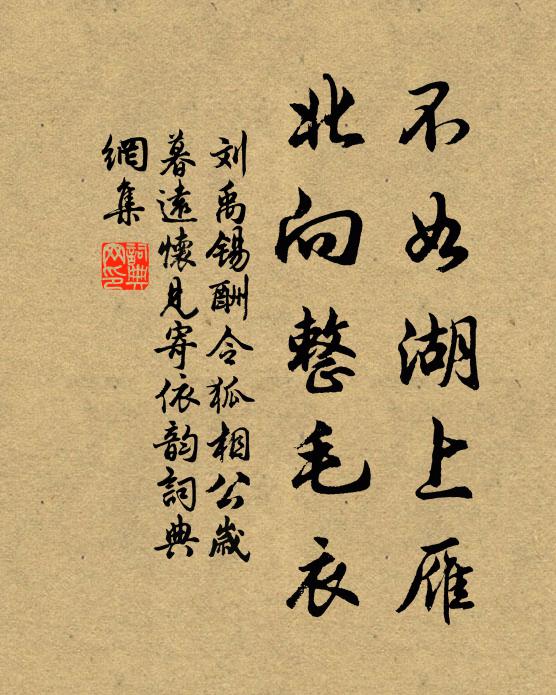 不如湖上雁
北向整毛衣
刘禹锡酬令狐相公岁
暮远懷見寄依韵詞典
網集
詞典网印